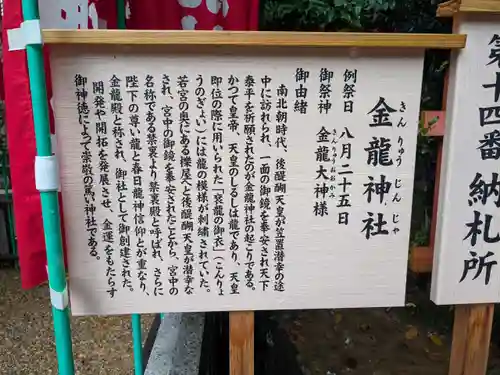 金龍神社
きんりゅうじんじゃ
例祭日 八月二十五日
御祭神 金龍大神様
きんりゅうおおかみ
御由緒
南北朝時代、後醍醐天皇が笠置潜幸の途
中に訪れられ、一面の御鏡を奉安され天下
泰平を祈願されたのが金龍神社の起こりである。
かつて皇帝、天皇のしるしは龍であり、天皇
即位の際に着られた「袞龍の御衣」(こんりょ
うのぎょい)には龍の模様が刺繍されていた。
若宮の奥にある櫟屋へと後醍醐天皇が潜幸
され、宮中の御鏡を奉安されたことから、宮中の
名称である禁裏より禁裏殿と呼ばれ、さらに
陛下の尊い龍と春日龍神信仰とが重なり、
金龍殿と称され、御社として御創建された。
開発や開拓を発展させ、金運をもたらす
御神徳によって崇敬の篤い神社である。
第十四番 納札所